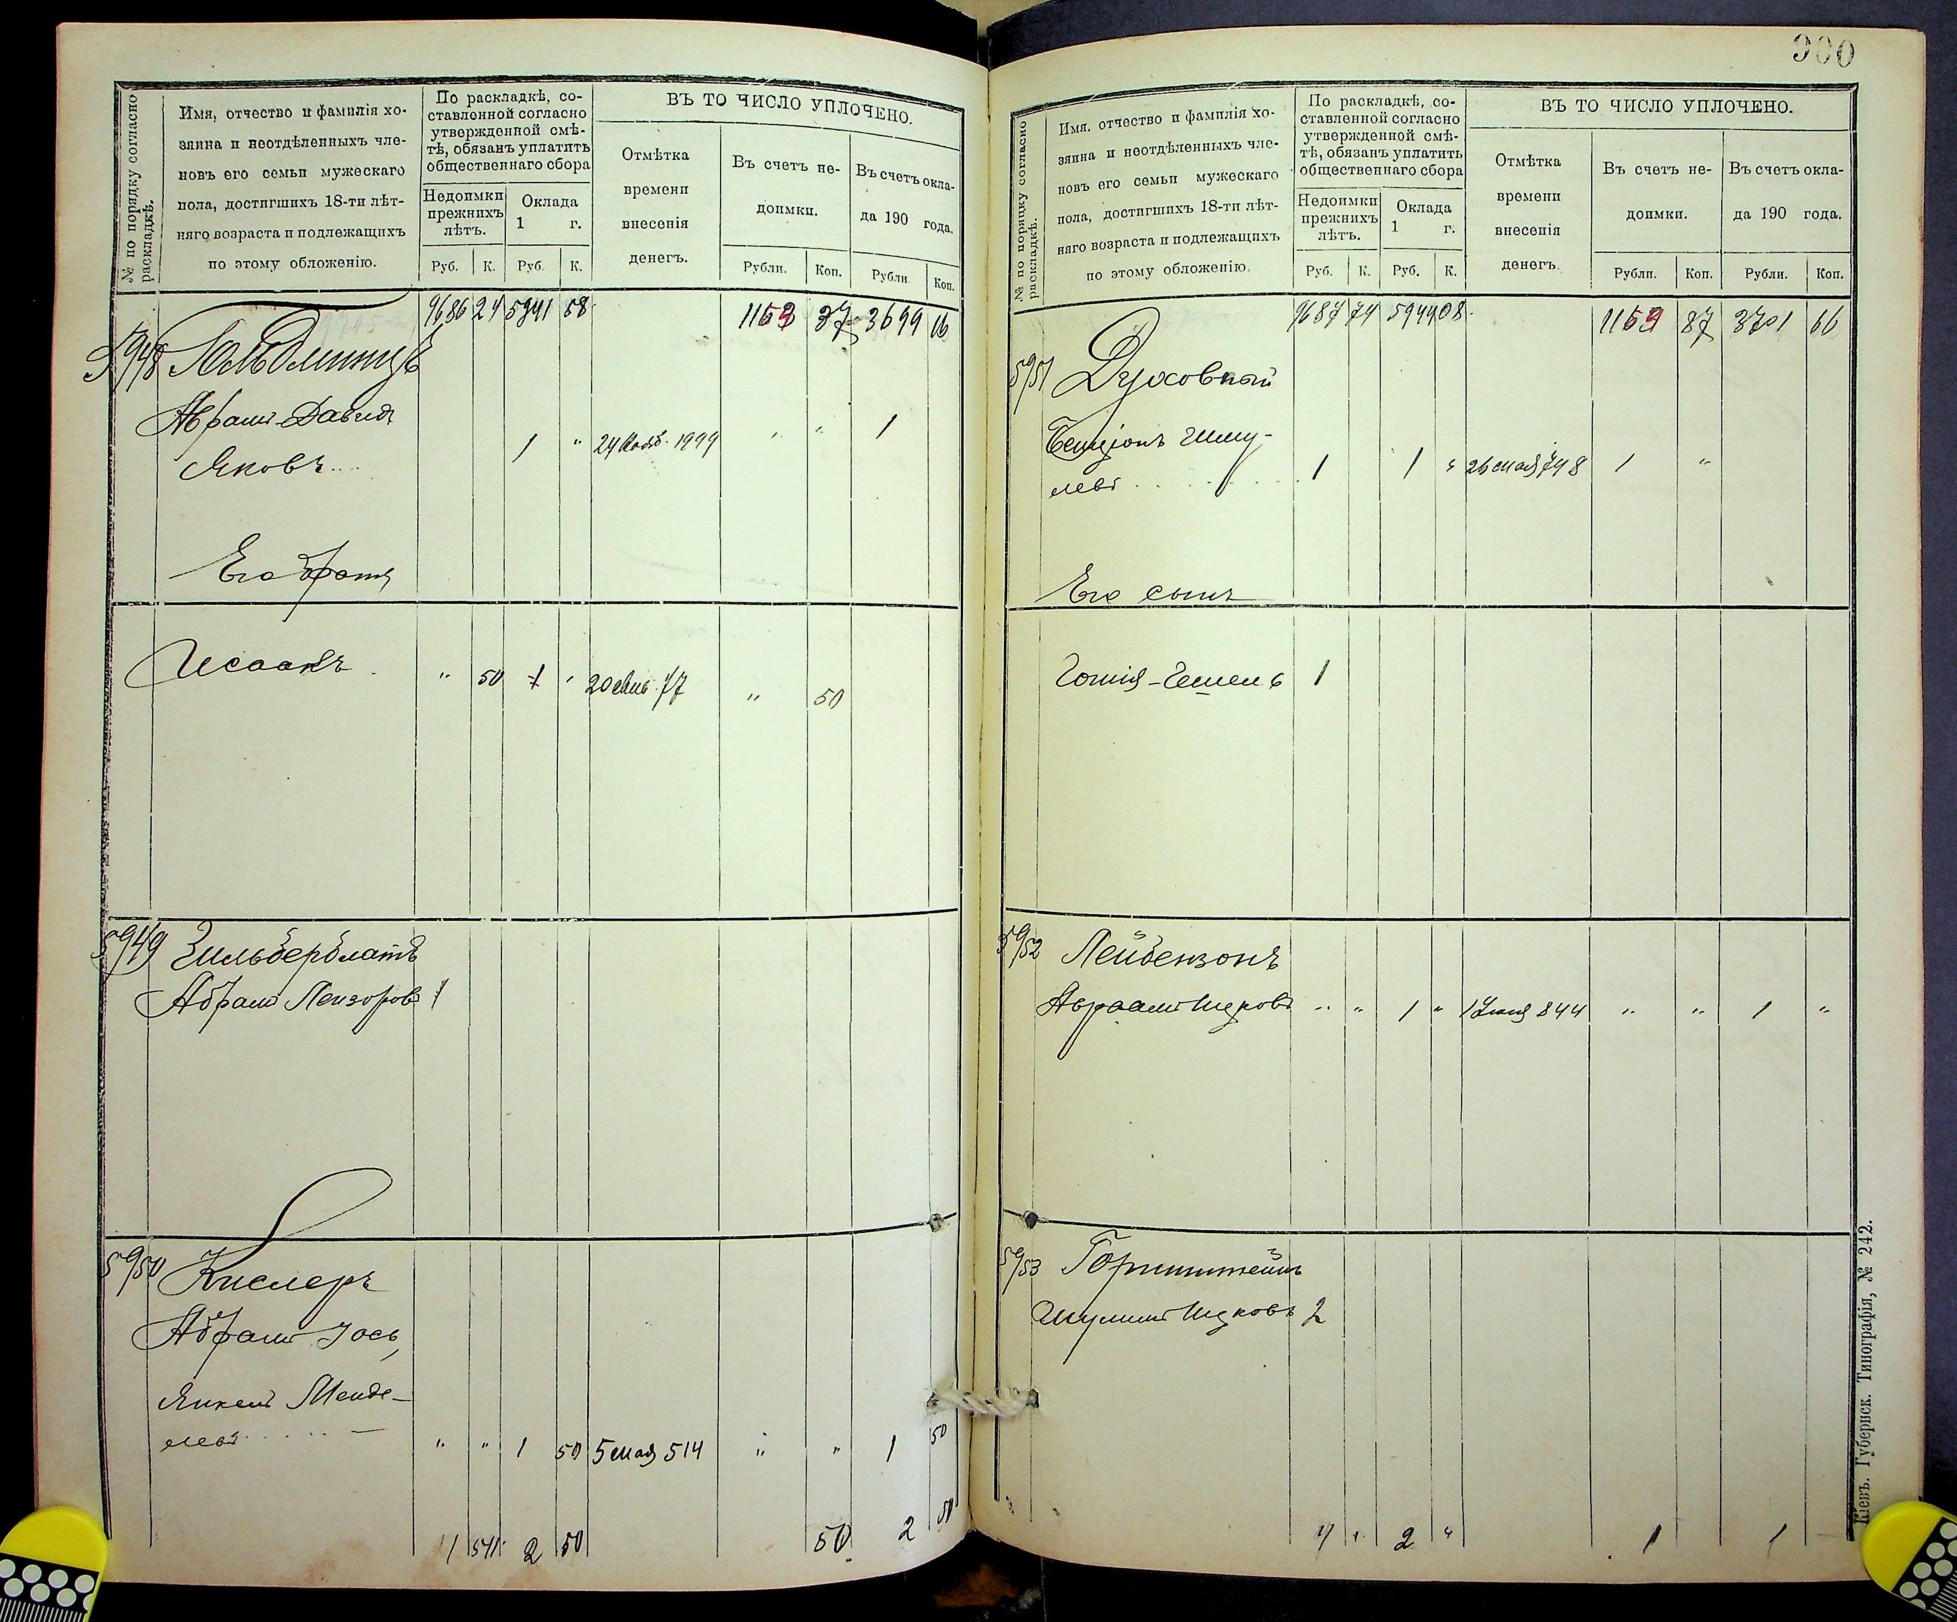 № по порядку согласно раскладкѣ.
Имя, отчество и фамилія хо-
зяина и неотдѣленныхъ чле-
новъ его семьи мужескаго
пола, достигшихъ 18-ти лѣт-
няго возраста и подлежащихъ
по этому обложенію.
По раскладкѣ, со-
ставленной согласно
утвержденной смѣ-
тѣ, обязанъ уплатить
общественнаго сбора
Недоимки
прежнихъ
лѣтъ.
Оклада
1 г.
Руб. К. Руб. К.
ВЪ ТО ЧИСЛО УПЛОЧЕНО.
Отмѣтка
времени
внесенія
денегъ.
Въ счетъ не-
доимки.
Въ счетъ окла-
да 190 года.
Рубли. Коп. Рубли Коп.
9686 24 5941 58 1153 37 3699 16
5948
Авраам Давид
Яковъ 1 " 1
Его братъ
Исаакъ " 50 1 " " 50
5949 Зильберблатъ
Абрамъ Лейзоровъ 1
5950 Кислеръ
Абрамъ Іось,
Янкель Менде-
левъ " " 1 50 5 мая 514 " " 1 50
1 2 50 50 2 50
900
№ по порядку согласно раскладкѣ.
Имя, отчество и фамилія хо-
зяина и неотдѣленныхъ чле-
новъ его семьи мужескаго
пола, достигшихъ 18-ти лѣт-
няго возраста и подлежащихъ
по этому обложенію.
По раскладкѣ, со-
ставленной согласно
утвержденной смѣ-
тѣ, обязанъ уплатить
общественнаго сбора
Недоимки
прежнихъ
лѣтъ.
Оклада
1 г.
Руб. К. Руб. К.
ВЪ ТО ЧИСЛО УПЛОЧЕНО.
Отмѣтка
времени
внесенія
денегъ.
Въ счетъ не-
доимки.
Въ счетъ окла-
да 190 года.
Рубли. Коп. Рубли. Коп.
9687 74 5944 08 1153 87 3701 66
5951 Духовный
Бенціонъ Шму-
левъ 1 1 " 26 мая 748 1 "
Его сынъ
1
5952 Лейбензонъ
Авраамъ Ицковъ " " 1 " 844 " " 1 "
5953 Горнштейнъ
Шулимъ Ицковъ 2
4 " 2 " 1 1
Кіевъ. Губернск. Типографія, № 242.